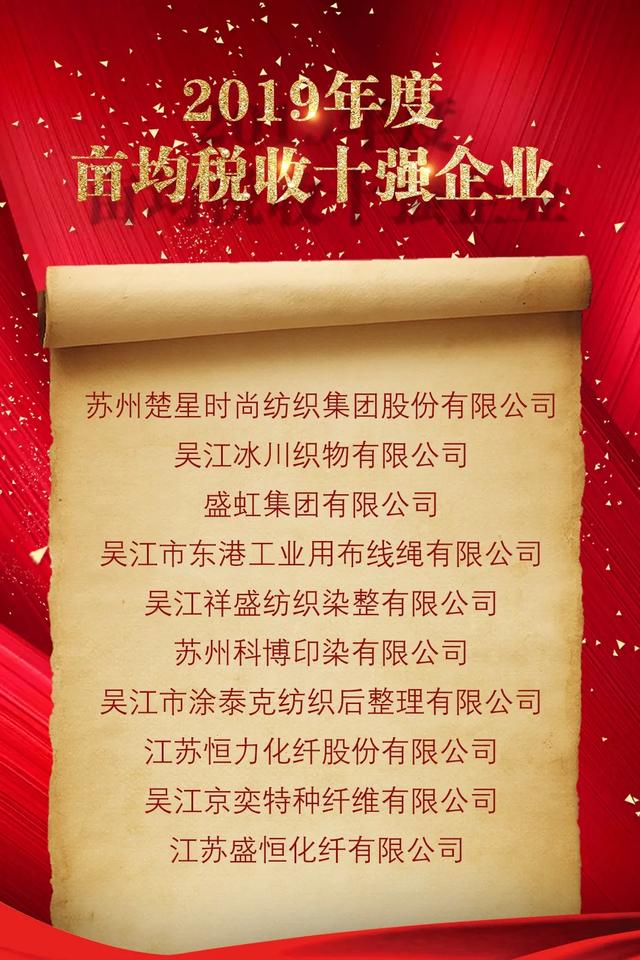 2019年度
亩均税收十强企业
苏州楚星时尚纺织集团股份有限公司
吴江冰川织物有限公司
盛虹集团有限公司
吴江市东港工业用布线绳有限公司
吴江祥盛纺织染整有限公司
苏州科博印染有限公司
吴江市涂泰克纺织后整理有限公司
江苏恒力化纤股份有限公司
吴江京奕特种纤维有限公司
江苏盛恒化纤有限公司